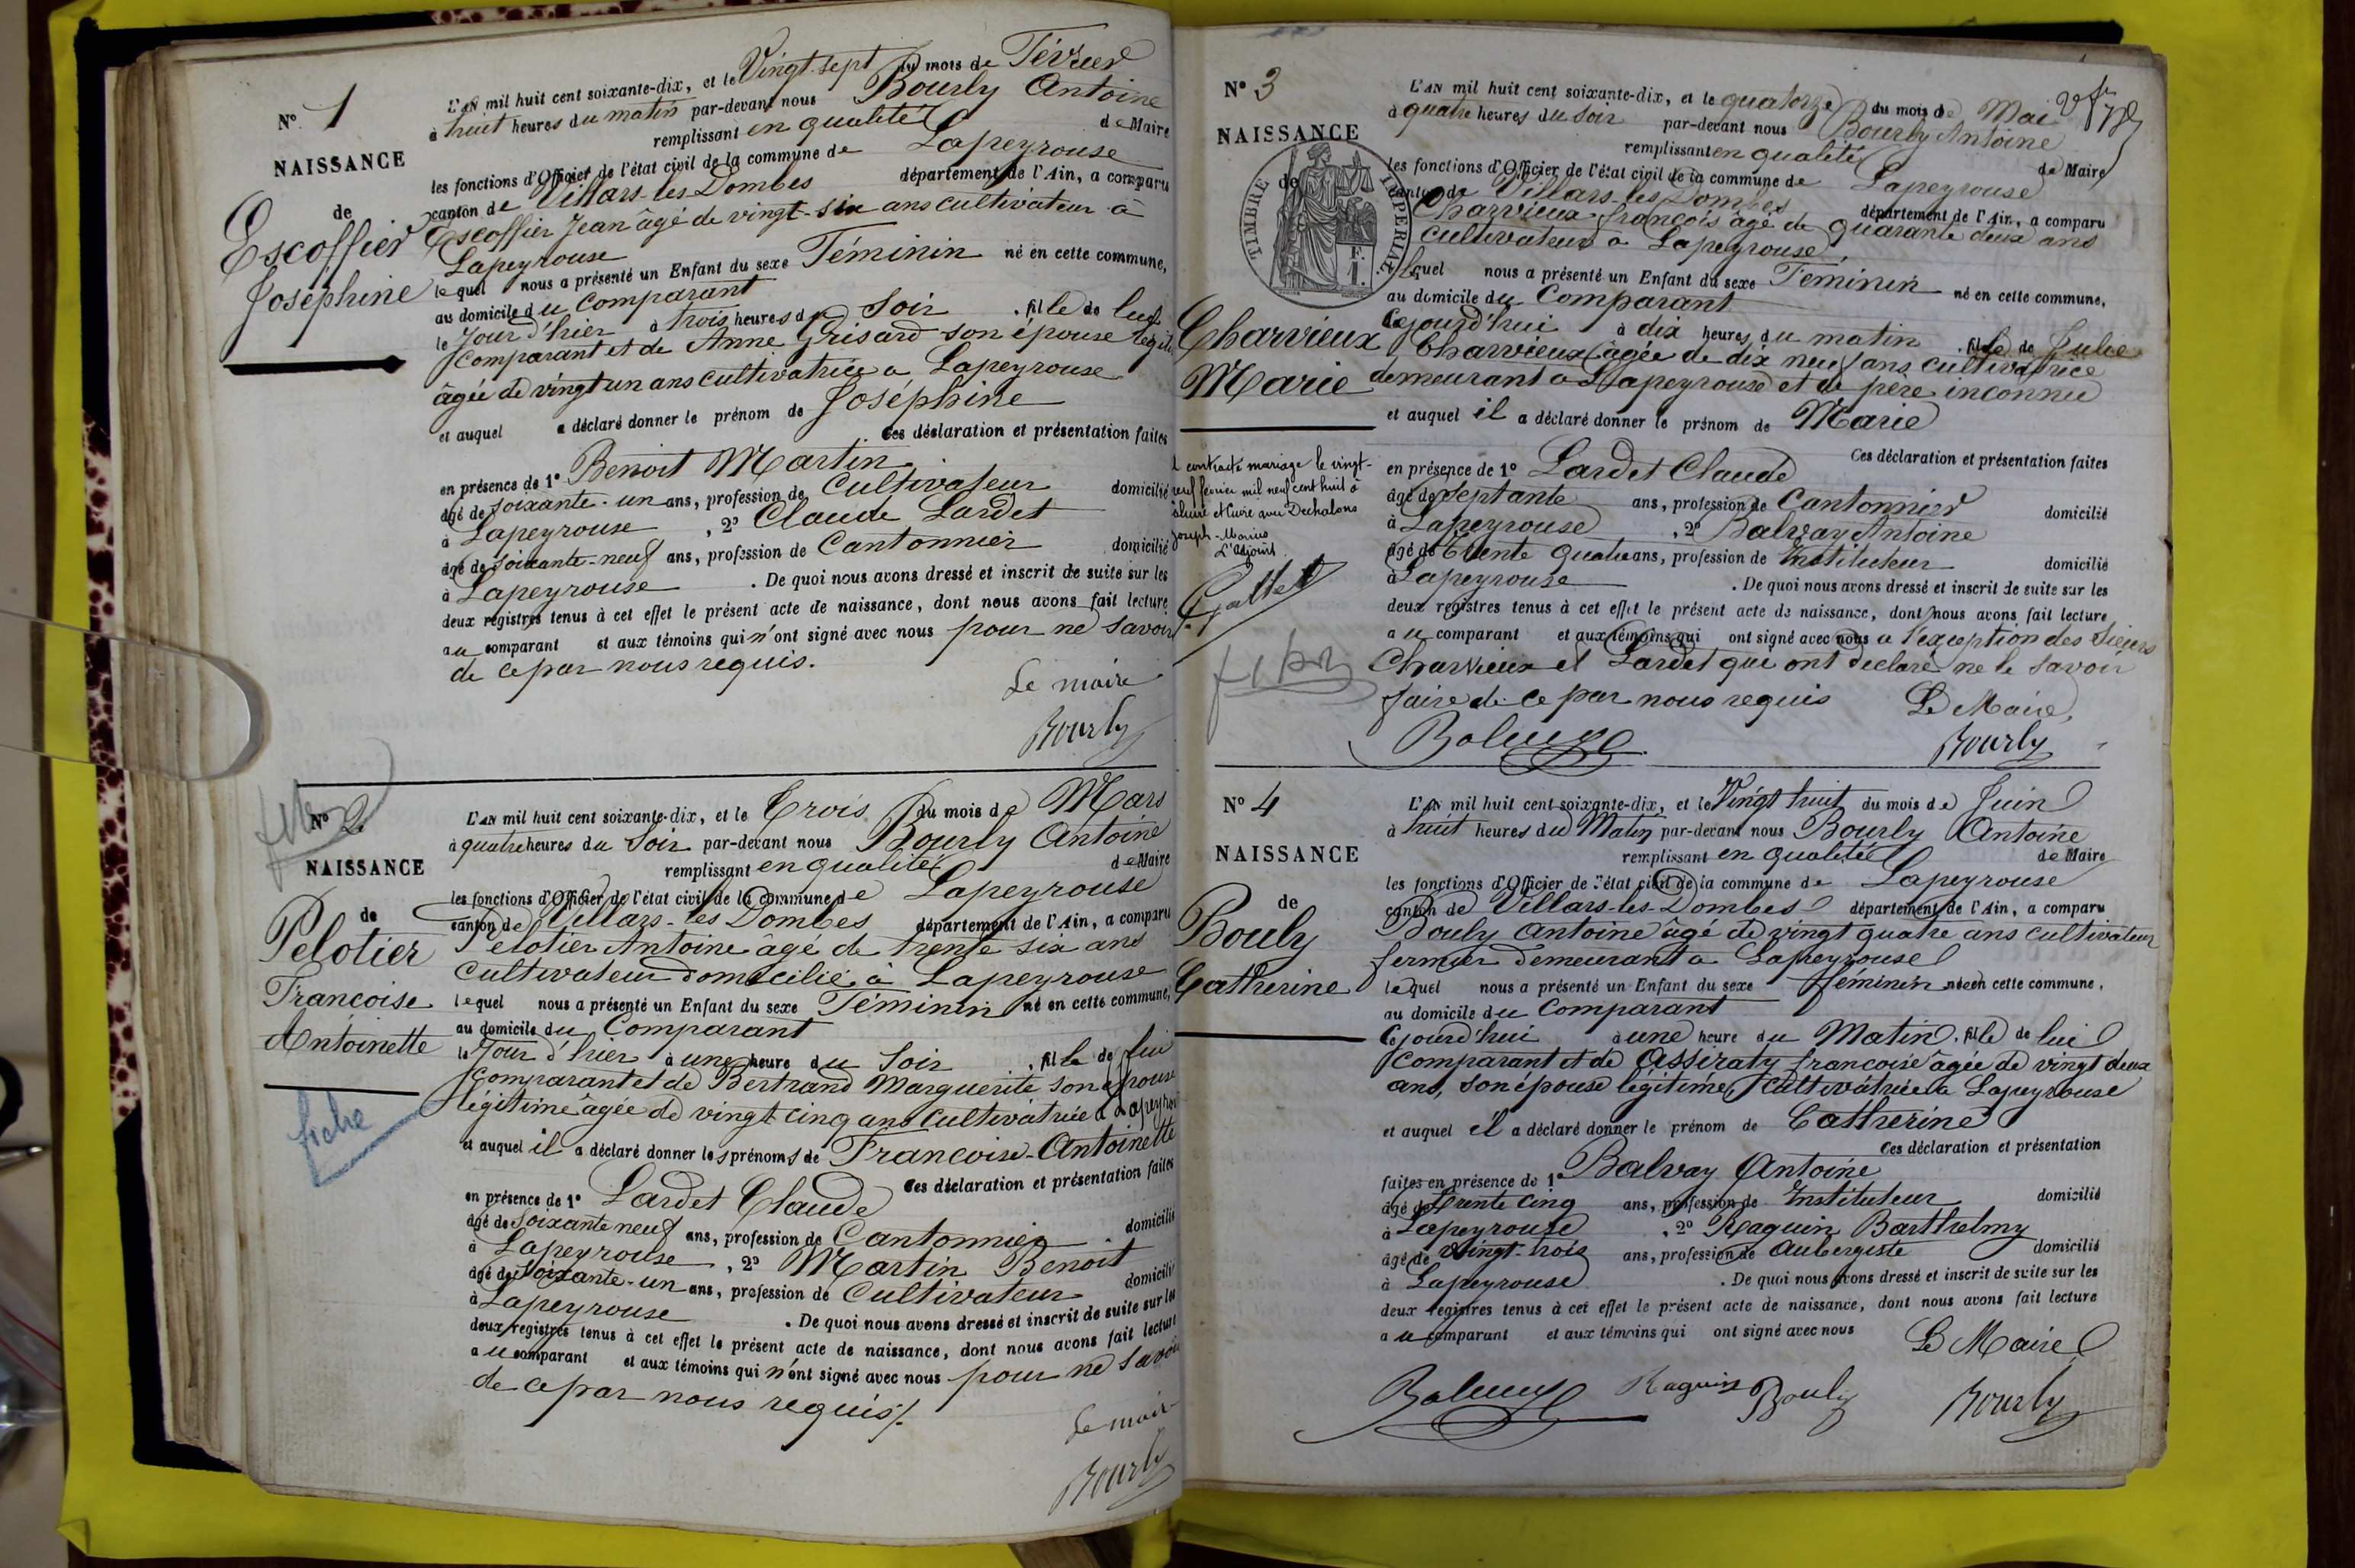 N° 1
NAISSANCE
de
Escoffier
Joséphine
L'AN mil huit cent soixante-dix, et le Vingt-sept du mois de Février
à huit heures du matin par-devant nous Bourly Antoine
remplissant en qualité de Maire
les fonctions d'Officier de l'état civil de la commune de Lapeyrouse
canton de Villars-les-Dombes département de l'Ain, a comparu
Escoffier Jean âgé de vingt-six ans cultivateur à
Lapeyrouse
lequel nous a présenté un Enfant du sexe Féminin né en cette commune,
au domicile du Comparant
le Jour d'hier à trois heures du Soir . fille de lui
Comparant et de Anne Grisard son épouse
âgée de vingt un ans cultivatrice a Lapeyrouse
et auquel a déclaré donner le prénom de Joséphine
Ces déclaration et présentation faites
en présence de 1° Benoit Martin
âgé de soixante-un ans, profession de Cultivateur domicilié
à Lapeyrouse , 2° Claude Lardet
âgé de soixante-neuf ans, profession de Cantonnier domicilié
à Lapeyrouse . De quoi nous avons dressé et inscrit de suite sur les
deux registres tenus à cet effet le présent acte de naissance, dont nous avons fait lecture
au comparant et aux témoins qui n'ont signé avec nous pour ne savoir
de ce par nous requis.
Le maire
Bourly
N° 2
NAISSANCE
de
Pelotier
Françoise
Antoinette
fiche
L'AN mil huit cent soixante-dix, et le Trois du mois de Mars
à quatre heures du Soir par-devant nous Bourly Antoine
remplissant en qualité de Maire
les fonctions d'Officier de l'état civil de la commune de Lapeyrouse
canton de Villars-les Dombes département de l'Ain, a comparu
Pelotier Antoine agé de trente six ans
Cultivateur domicilié à Lapeyrouse
lequel nous a présenté un Enfant du sexe Féminin né en cette commune,
au domicile du Comparant
le Jour d'hier à une heure du Soir . fille de lui
Comparant et de Bertrand Marguerite son épouse
légitime âgée de vingt cinq ans cultivatrice à Lapeyrouse
et auquel il a déclaré donner les prénoms de Francoise-Antoinette
Ces déclaration et présentation faites
en présence de 1° Lardet Claude
âgé de Soixante neuf ans, profession de Cantonnier domicilié
à Lapeyrouse , 2° Martin Benoit
âgé de Soixante-un ans, profession de Cultivateur domicilié
à Lapeyrouse . De quoi nous avons dressé et inscrit de suite sur les
deux registres tenus à cet effet le présent acte de naissance, dont nous avons fait lecture
au comparant et aux témoins qui n'ont signé avec nous pour ne savoir
de ce par nous requis.
Le maire
Bourly
N° 3
NAISSANCE
de
TIMBRE IMPERIAL
Charvieux
Marie
contracté mariage le vingt-
neuf février mil neuf cent huit à
Caluire et Cuire avec Dechalons
Joseph-Marius
L'adjoint
L'AN mil huit cent soixante-dix, et le quatorze du mois de Mai
à quatre heures du Soir par-devant nous Bourly Antoine
remplissant en qualité de Maire
les fonctions d'Officier de l'état civil de la commune de Lapeyrouse
canton de Villars les Dombes département de l'Ain, a comparu
Charvieux françois âgé de quarante deux ans
cultivateur a Lapeyrouse
lequel nous a présenté un Enfant du sexe Féminin né en cette commune,
au domicile du Comparant
Cejourd'hui à dix heures du matin . fille de Julie
Charvieux âgée de dix neuf ans cultivatrice
demeurant a Lapeyrouse et de père inconnu
et auquel il a déclaré donner le prénom de Marie
Ces déclaration et présentation faites
en présence de 1° Lardet Claude
âgé de septante ans, profession de Cantonnier domicilié
à Lapeyrouse , 2° Balvay Antoine
âgé de trente quatre ans, profession de Instituteur domicilié
à Lapeyrouse . De quoi nous avons dressé et inscrit de suite sur les
deux registres tenus à cet effet le présent acte de naissance, dont nous avons fait lecture
au comparant et aux témoins qui ont signé avec nous a l'exception des Sieurs
Charvieux et Lardet qui ont déclaré ne le savoir
faire de ce par nous requis Le Maire
Balvay Bourly
N° 4
NAISSANCE
de
Bouly
Catherine
L'AN mil huit cent soixante-dix, et le Vingt huit du mois de Juin
à huit heures du Matin par-devant nous Bourly Antoine
remplissant en qualité de Maire
les fonctions d'Officier de l'état civil de la commune de Lapeyrouse
canton de Villars-les-Dombes département de l'Ain, a comparu
Bouly Antoine âgé de vingt quatre ans cultivateur
fermier demeurant a Lapeyrouse
lequel nous a présenté un Enfant du sexe féminin née en cette commune,
au domicile du Comparant
Cejourd'hui à une heure du Matin . fille de lui
Comparant et de Assiraty françoise âgée de vingt deux
ans, son épouse légitime, cultivatrice a Lapeyrouse
et auquel il a déclaré donner le prénom de Catherine
Ces déclaration et présentation
faites en présence de 1° Balvay Antoine
âgé de trente cinq ans, profession de Instituteur domicilié
à Lapeyrouse , 2° Raquin Barthelmy
âgé de vingt-trois ans, profession de Aubergiste domicilié
à Lapeyrouse . De quoi nous avons dressé et inscrit de suite sur les
deux registres tenus à cet effet le présent acte de naissance, dont nous avons fait lecture
au comparant et aux témoins qui ont signé avec nous
Le Maire
Balvay Raquin Bouly Bourly